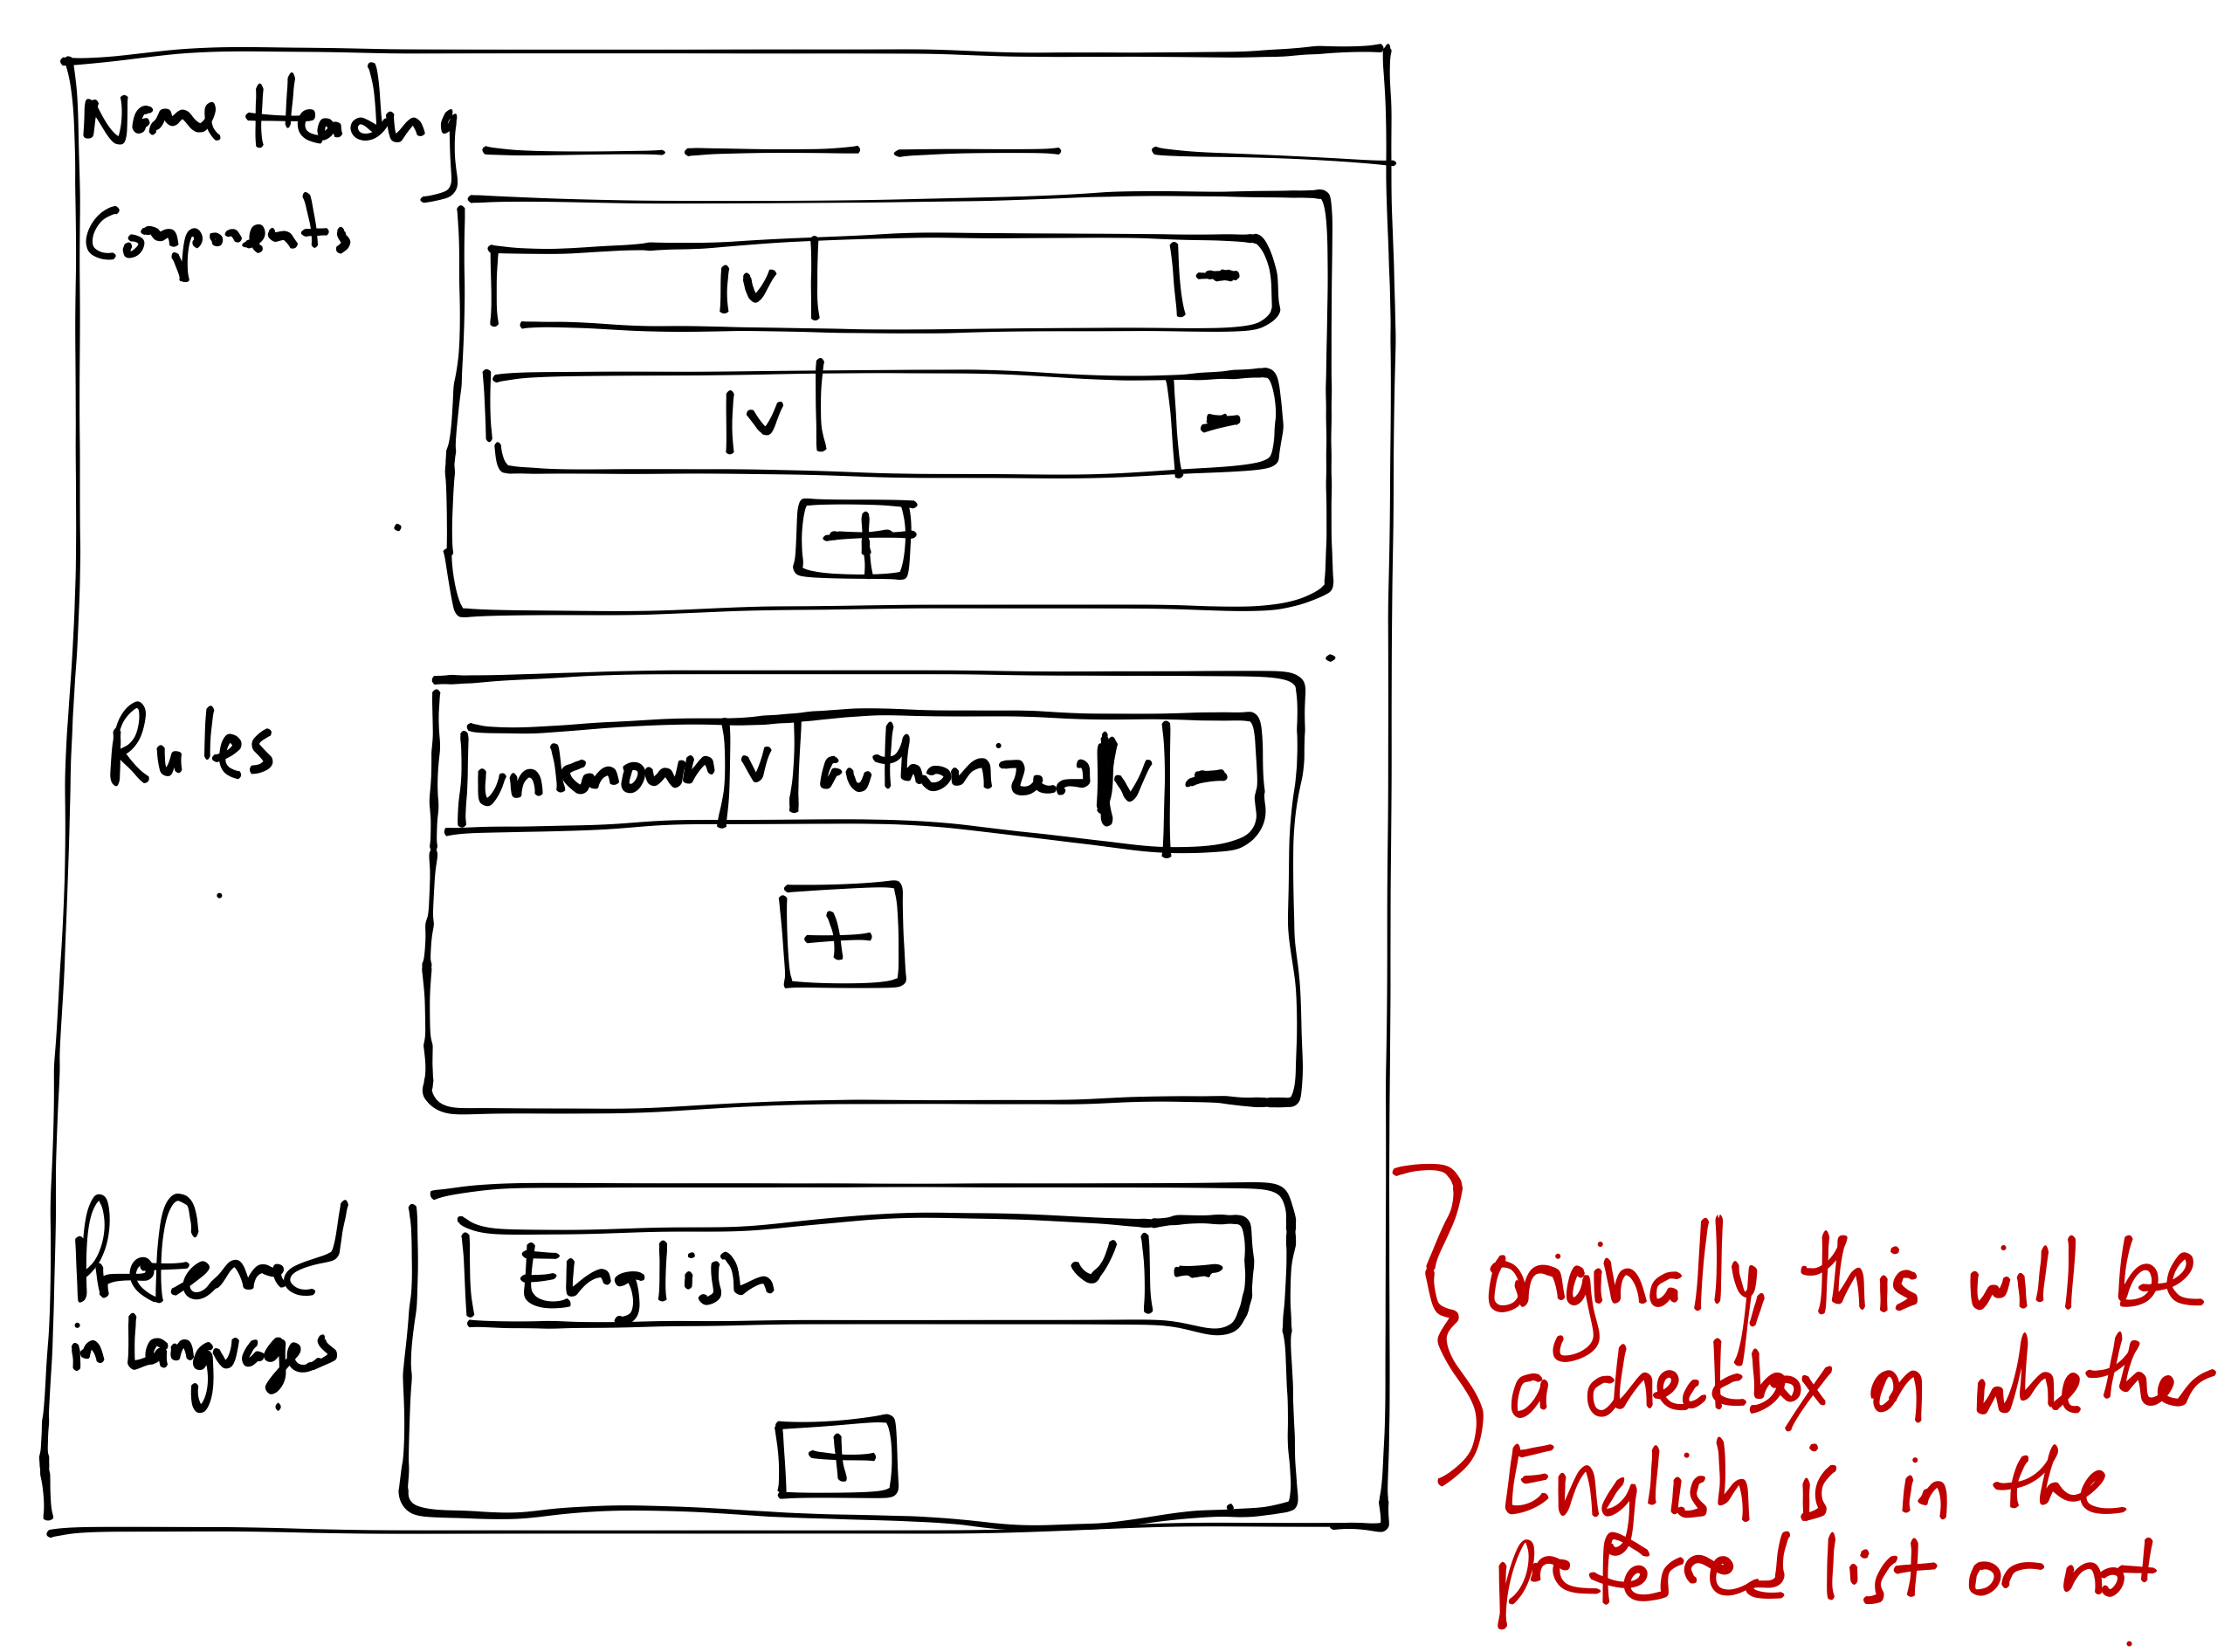 Name Handling
Components
Rules
when any
author in
Preferred
in languages
English
originally this is like
a checkbox on whether
English is in the
preferred list or not